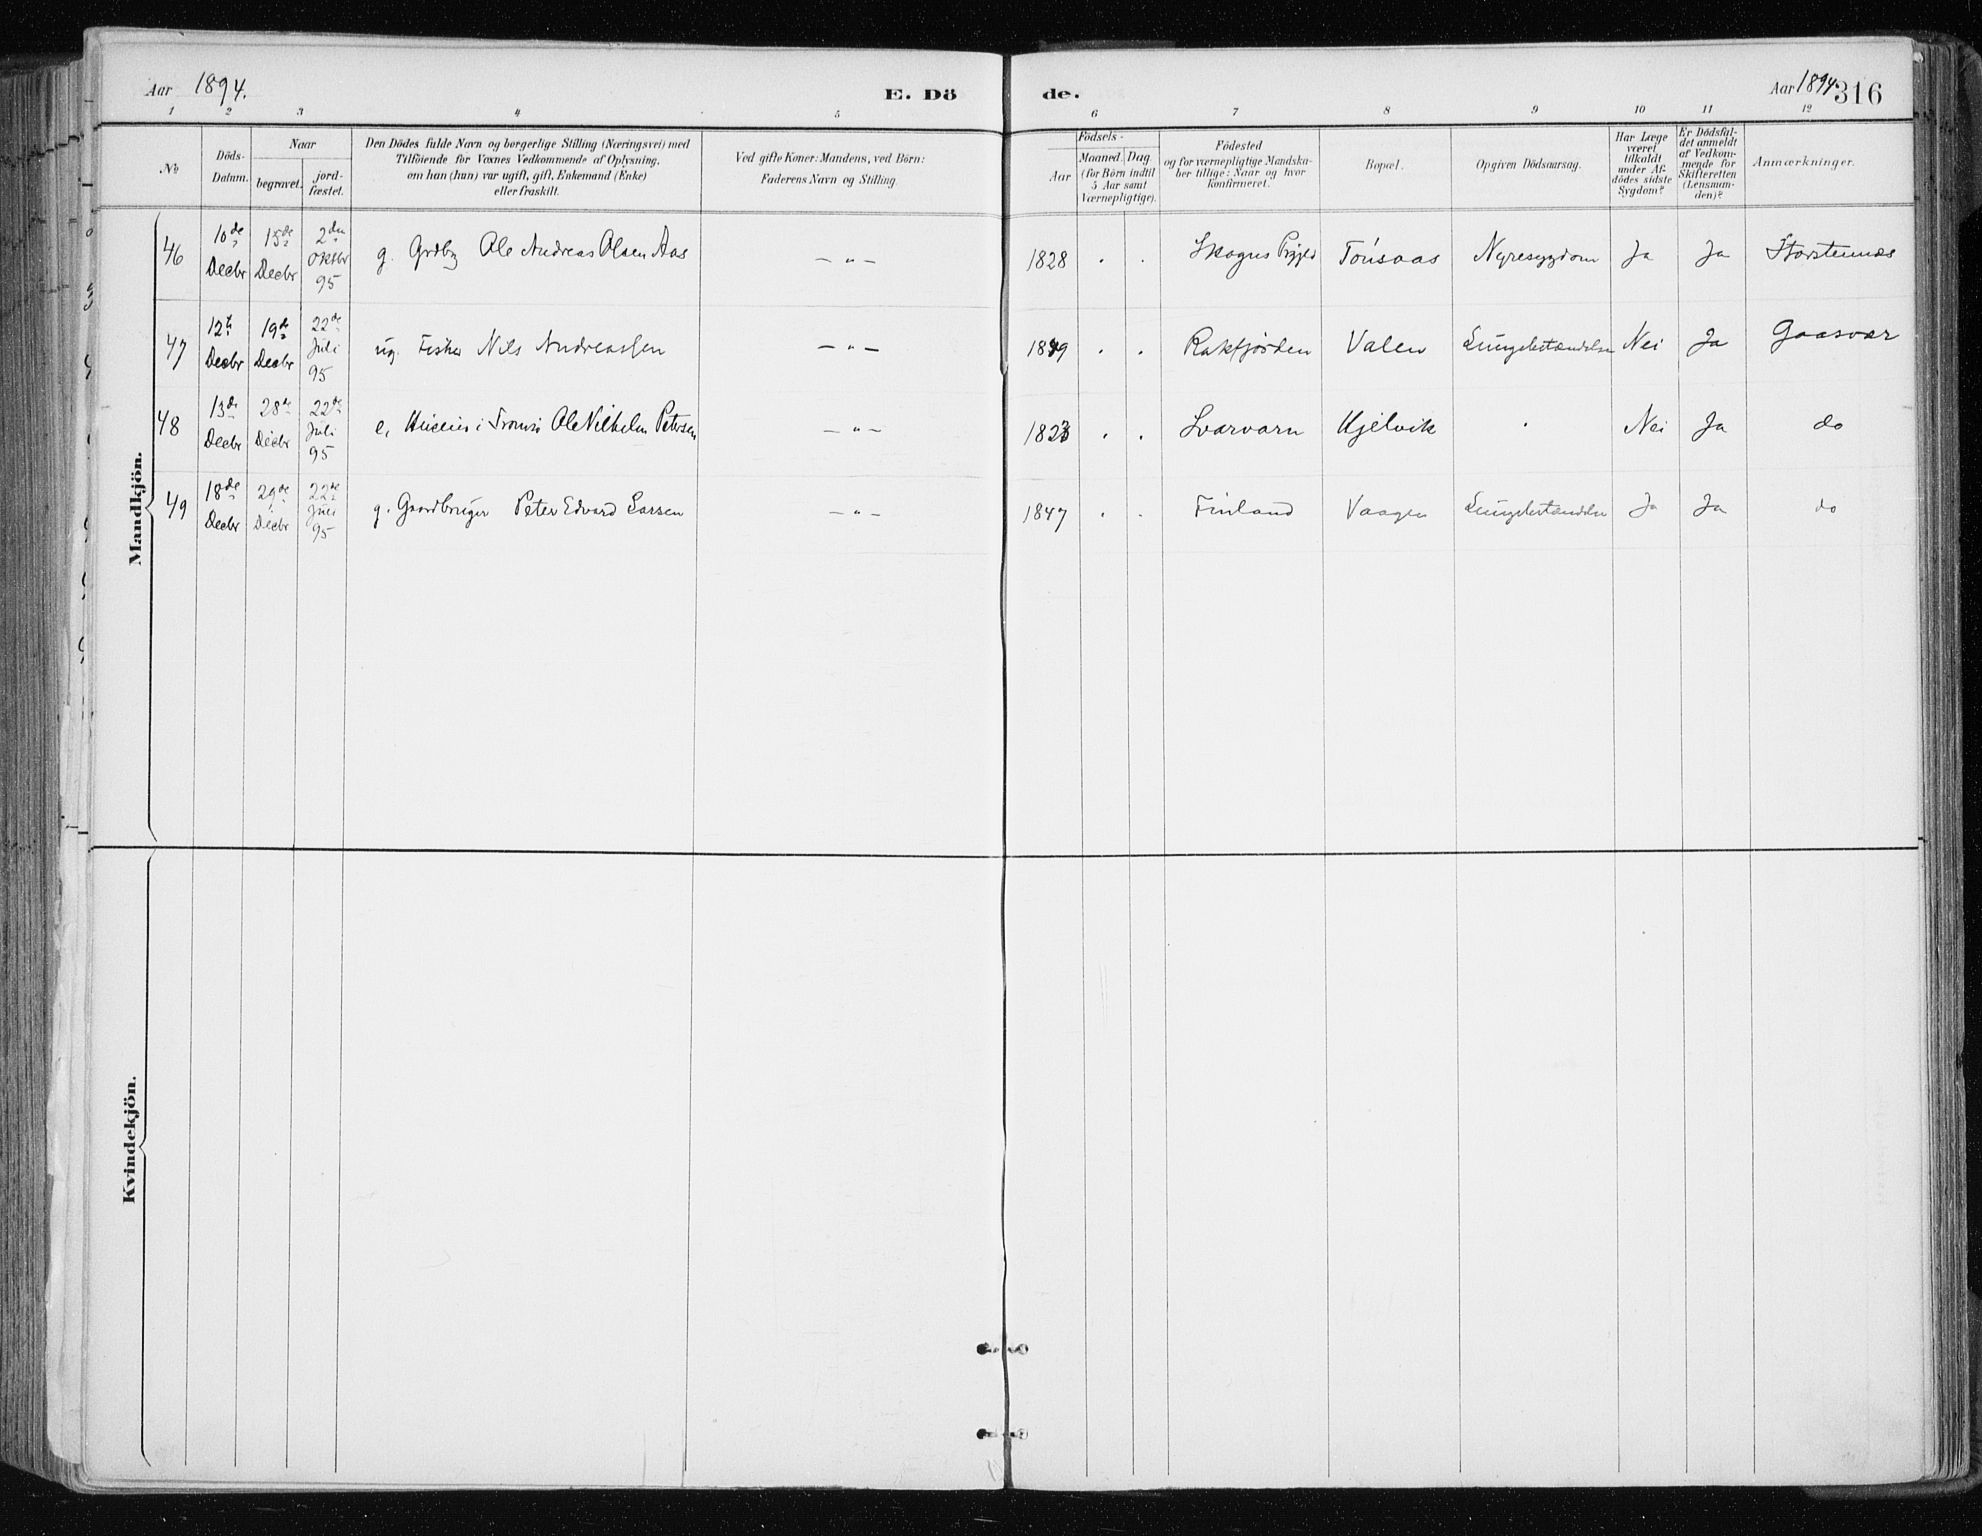 Aar 1894.
E. Dö
de.
Aar 1894.
316
1 2 3 4 5 6 7 8 9 10 11 12
No
Döds-
Datum.
Naar
begravet.
jord-
fæstet.
Den Dödes fulde Navn og borgerlige Stilling (Næringsvei) med
Tilföiende for Voxnes Vedkommende af Oplysning,
om han (hun) var ugift, gift, Enkemand (Enke)
eller fraskilt.
Ved gifte Koner: Mandens, ved Börn:
Faderens Navn og Stilling.
Födsels-
Aar
Maaned. Dag
(for Börn indtil
5 Aar samt
Værnepligtige).
Födested
og for værnepligtige Mandska-
ber tillige: Naar og hvor
konfirmeret.
Bopæl.
Opgiven Dödsaarsag.
Har Læge
været
tilkaldt
under Af-
dödes sidste
Sygdom?
Er Dødsfal-
det anmeldt
af Vedkom-
mende for
Skifteretten
(Lensman-
den)?
Anmærkninger.
Mandkjön.
46 10de Decbr 15de Decbr 2den Oktbr 95 g. Grdbg Ole Andreas Olsen Aas — " — 1828 . . Tönsaas Nyresygdom Ja Ja Storstennæs
47 12te Decbr 19de Decbr 22de Juli 95 ug. Fisker Nils Andreassen — " — . . Rakfjorden Valen Lungebetændelse Nei Ja Gaasvær
48 13de Decbr 28de Decbr 22de Juli 95 e. Ole Vilhelm Petersen — " — . . Hjelvik . Nei Ja do
49 18de Decbr 29de Decbr 22de Juli 95 g. Gaardbruger Peter Edvard Larsen — " — 1847 . . Finland Vaagen Lungebetændelse Ja Ja do
Kvindekjön.